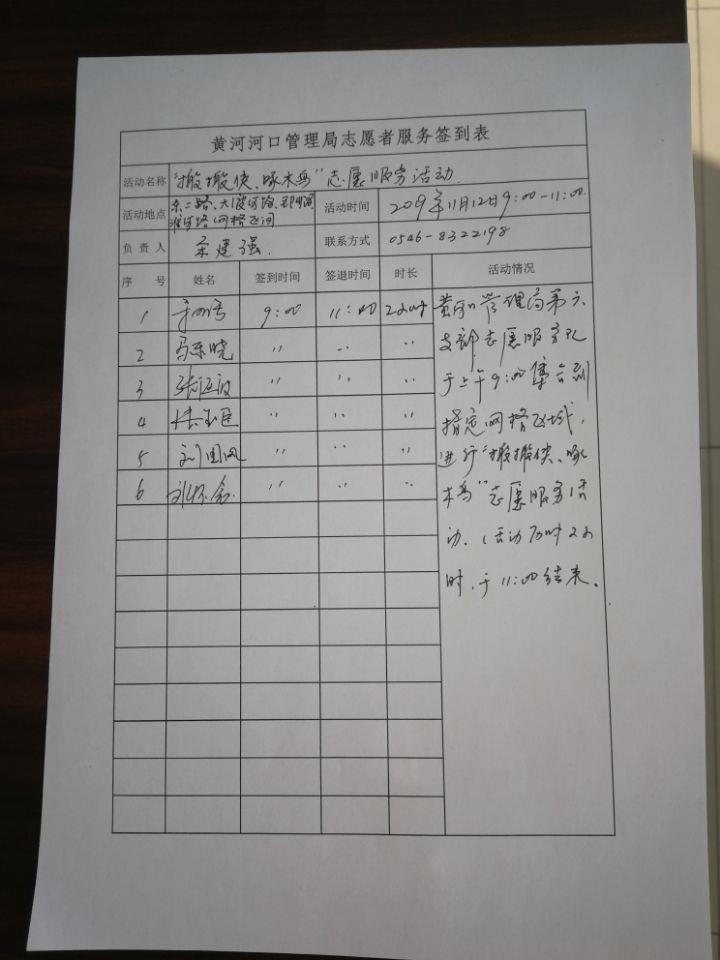 黄河河口管理局志愿者服务签到表
活动名称 "搬搬侠、啄木鸟"志愿服务活动
活动地点 东二路、大渡河路、
淮河路网格区间
活动时间 2019年11月12日9:00-11:00
负责人 建强
联系方式 0546-8322198
序号 姓名 签到时间 签退时间 时长 活动情况
1 9:00 11:00 2小时
2 马东晓 〃 〃 〃
3 〃 〃 〃
4 〃 〃 〃
5 刘国风 〃 〃 〃
6 〃 〃 〃
黄河口管理局第六
支部志愿服务队
于上午9:00集合到
指定网格区域,
进行"搬搬侠、啄
木鸟"志愿服务活
动。活动历时2小
时,于11:00结束。